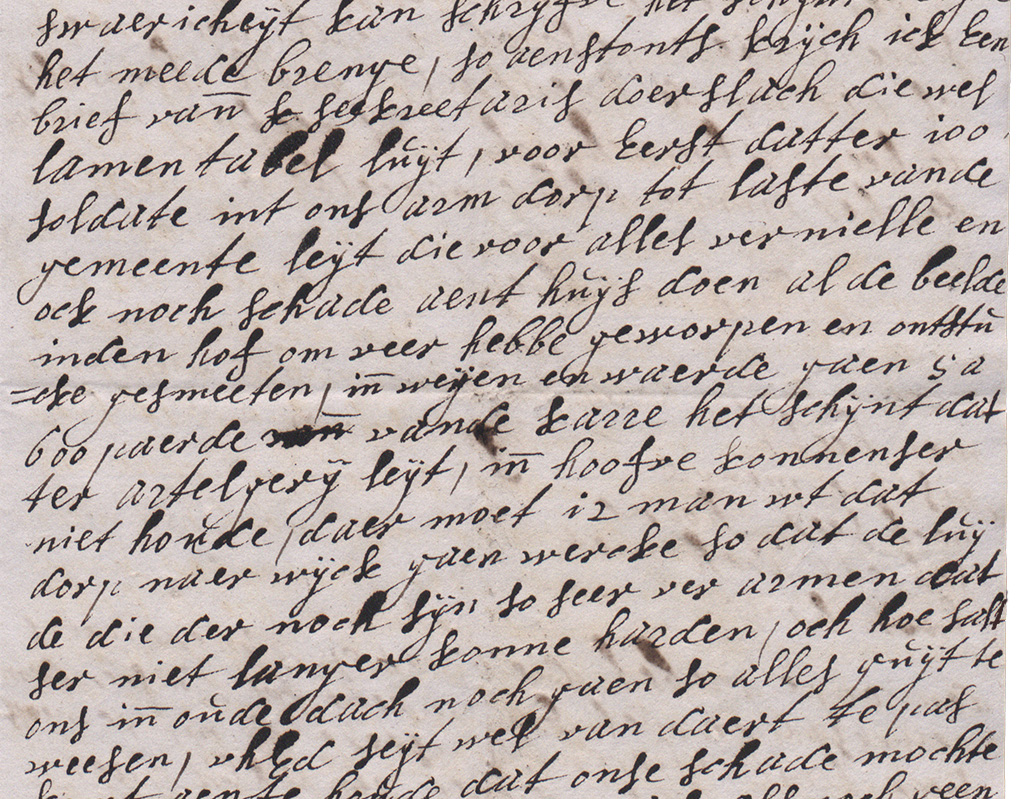 swaericheyt kan schryfve het schynt
het meede brenge, so aenstonts krych ick een
brief van seekreetaris doerslach die wel
lamentabel luyt, voor eerst datter 100
soldate int ons arm dorp tot laste vande
gemeente leyt die voor alles vernielle en
ock noch schade aent huys doen al de beelde
inden hof om veer hebbe geworpen en ontstu
=cke gesmeeten, in weyen en waerde gaen 5 a
600 paerde vande karre het schynt dat
ter artelyery leyt, in hoofve konnenser
niet houde, daer moet 12 man wt dat
dorp naer wyck gaen wercke so dat de luy
de die der noch syn so seer ver armen dat
ser niet langer konne harden, och hoe salt
ons in oude dach noch gaen so alles quyt te
weesen, uhEd seyt wel van daert te pas
houde dat onse schade mochte